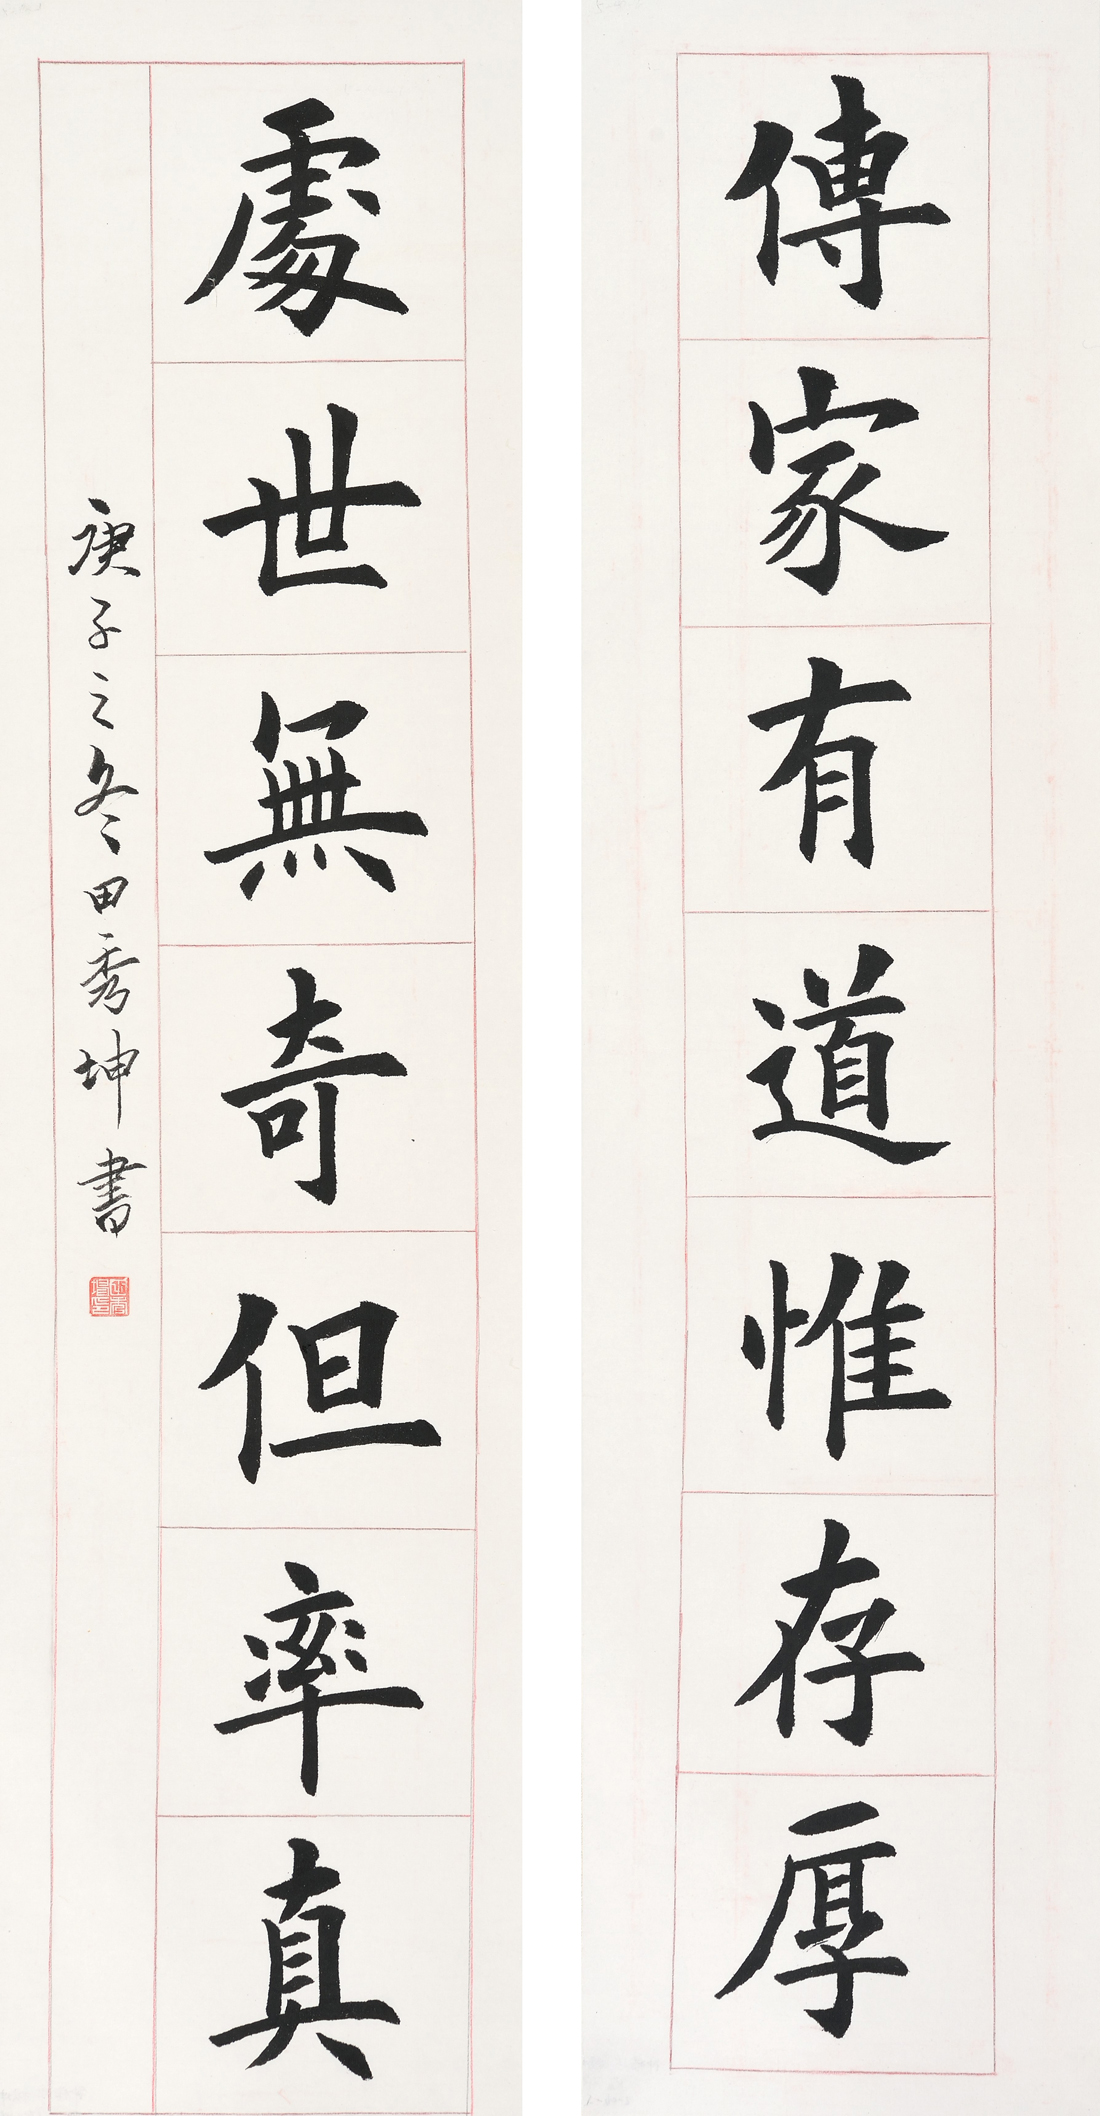 傳家有道惟存厚
處世無奇但率真
庚子之冬田秀坤書